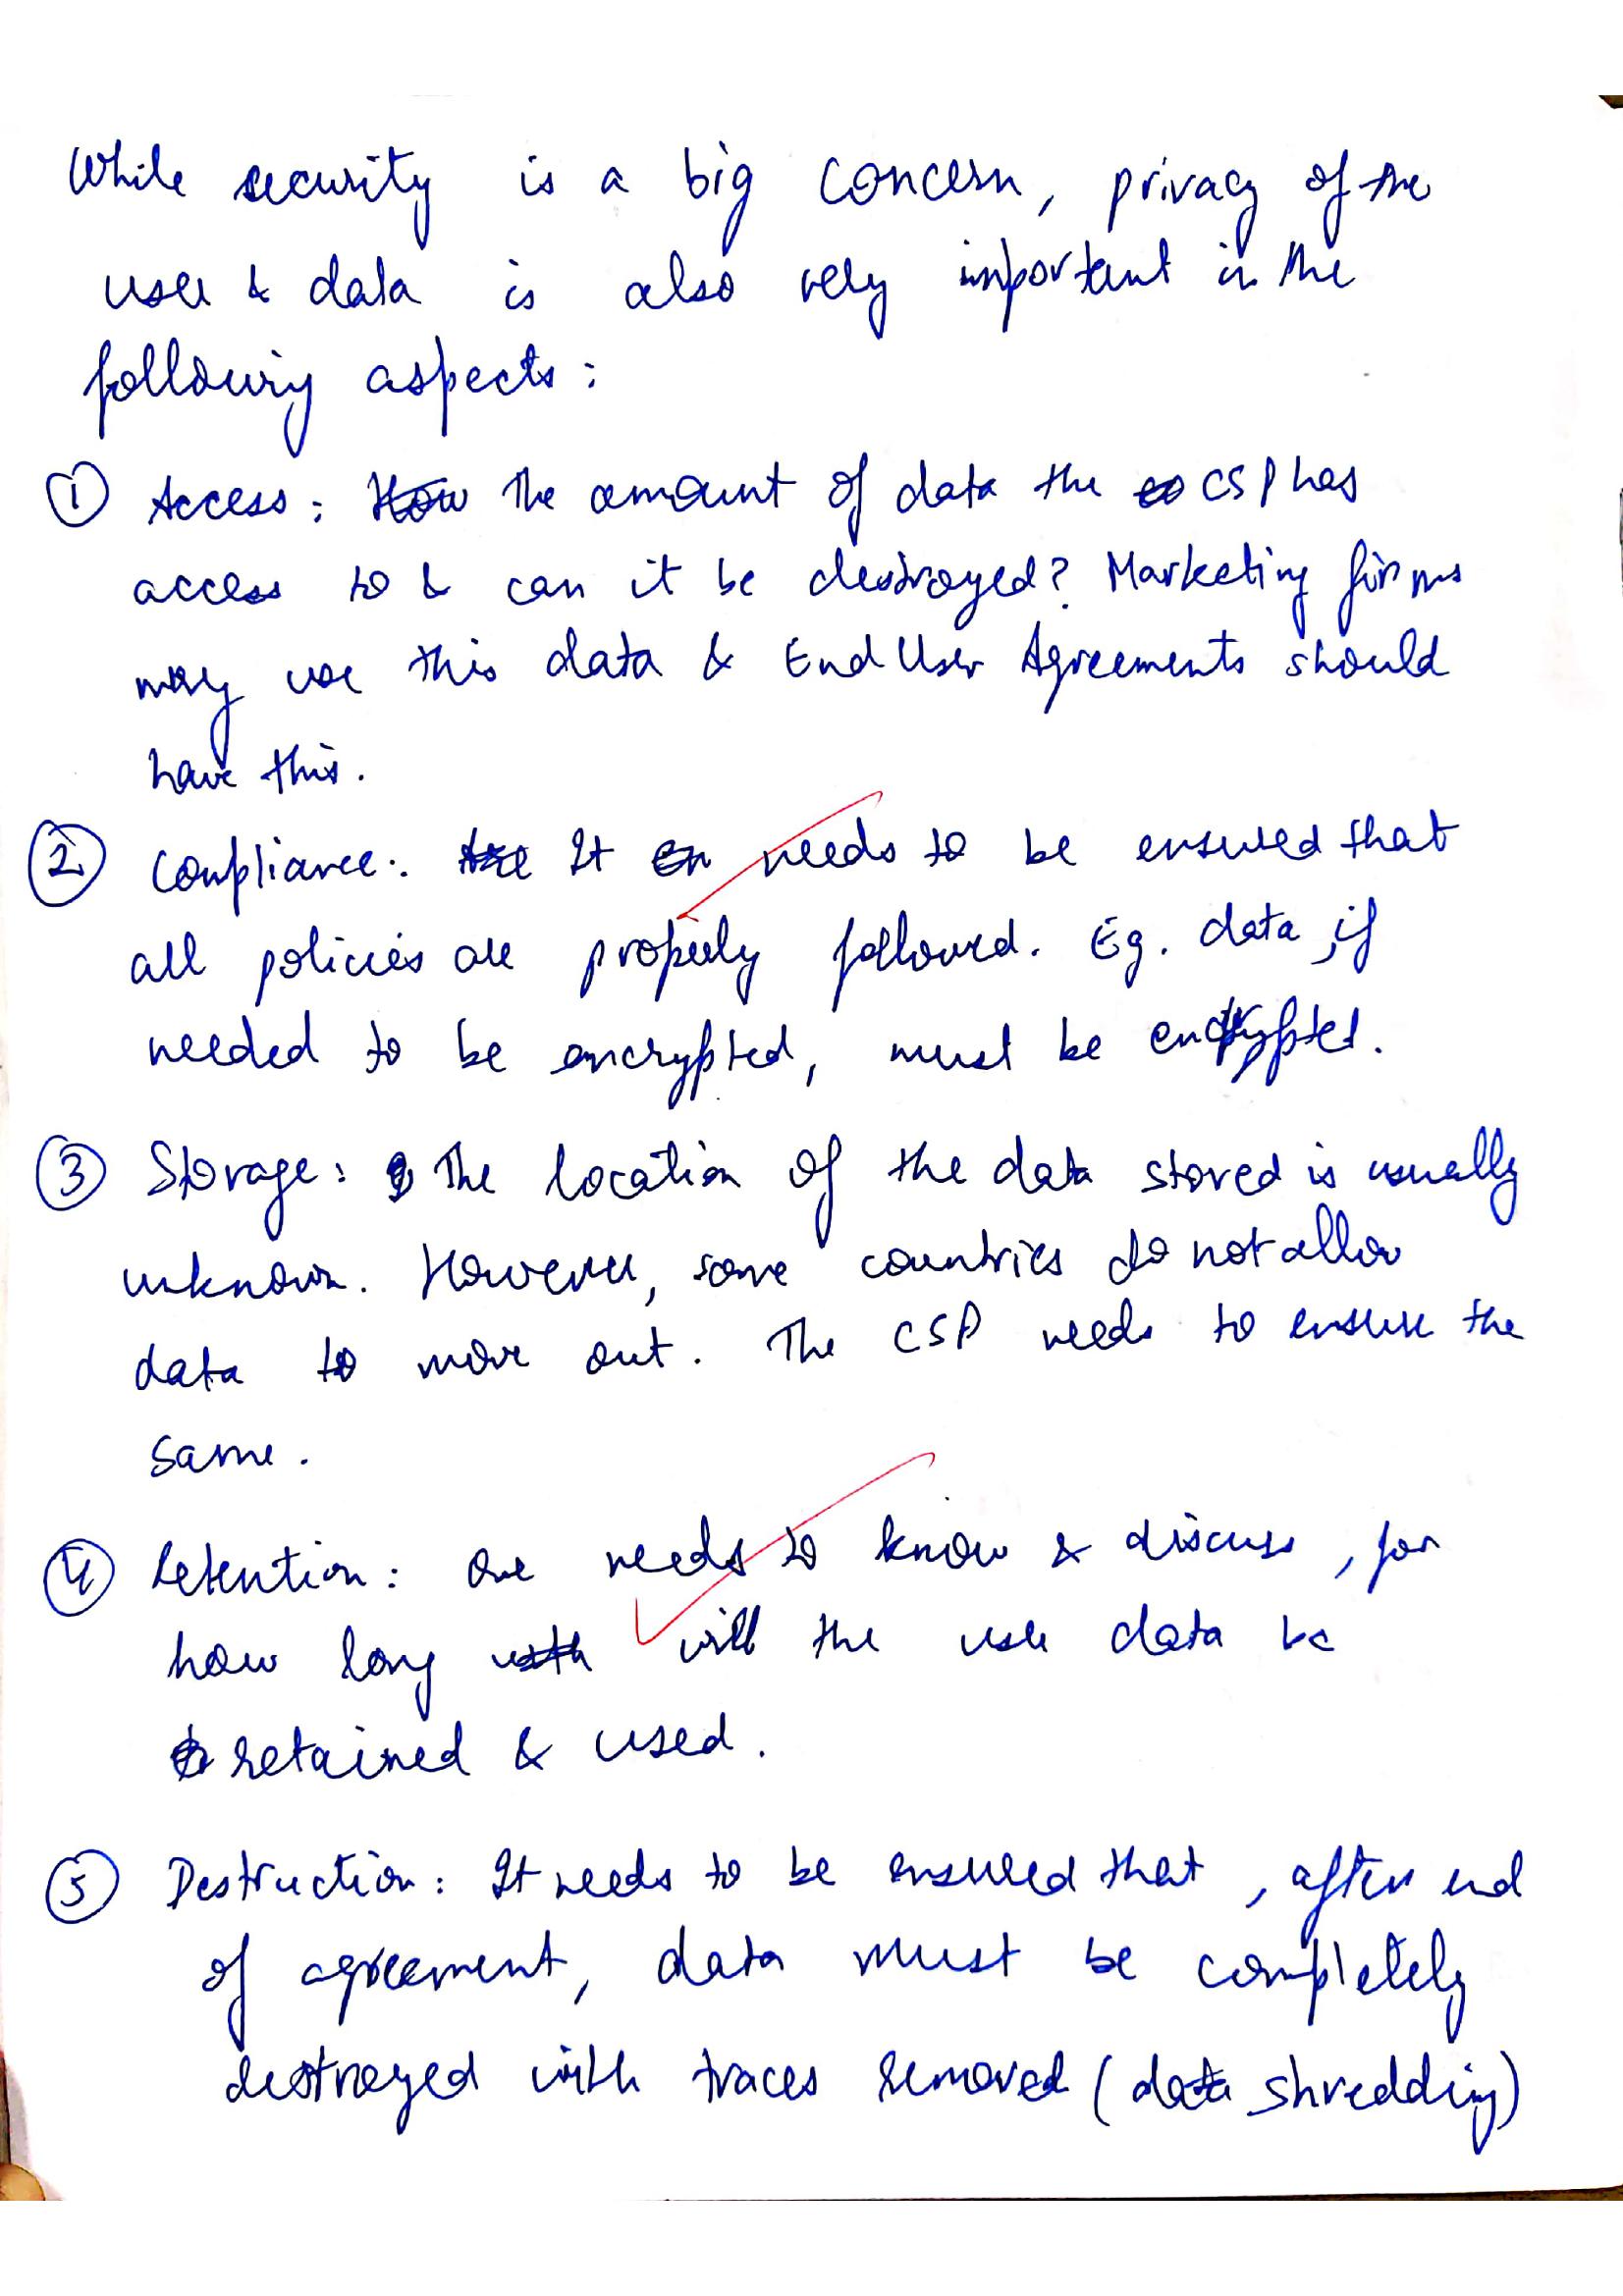 While security is a big concern, privacy of the
user & data is also very important in the
following aspects:
① Access: How The amount of data the CSP has
access to & can it be destroyed? Marketing firms
may use this data & End User Agreements should
have this.
② Compliance: It needs to be ensured that
all policies are properly followed. Eg. data, if
needed to be encrypted, must be encrypted.
③ Storage: The location of the data stored is usually
unknown. However, some countries do not allow
data to move out. The CSP needs to ensure the
same.
④ Retention: One needs to know & discuss, for
how long will the user data be
retained & used.
⑤ Destruction: It needs to be ensured that, after end
of agreement, data must be completely
destroyed with traces removed (data shredding)